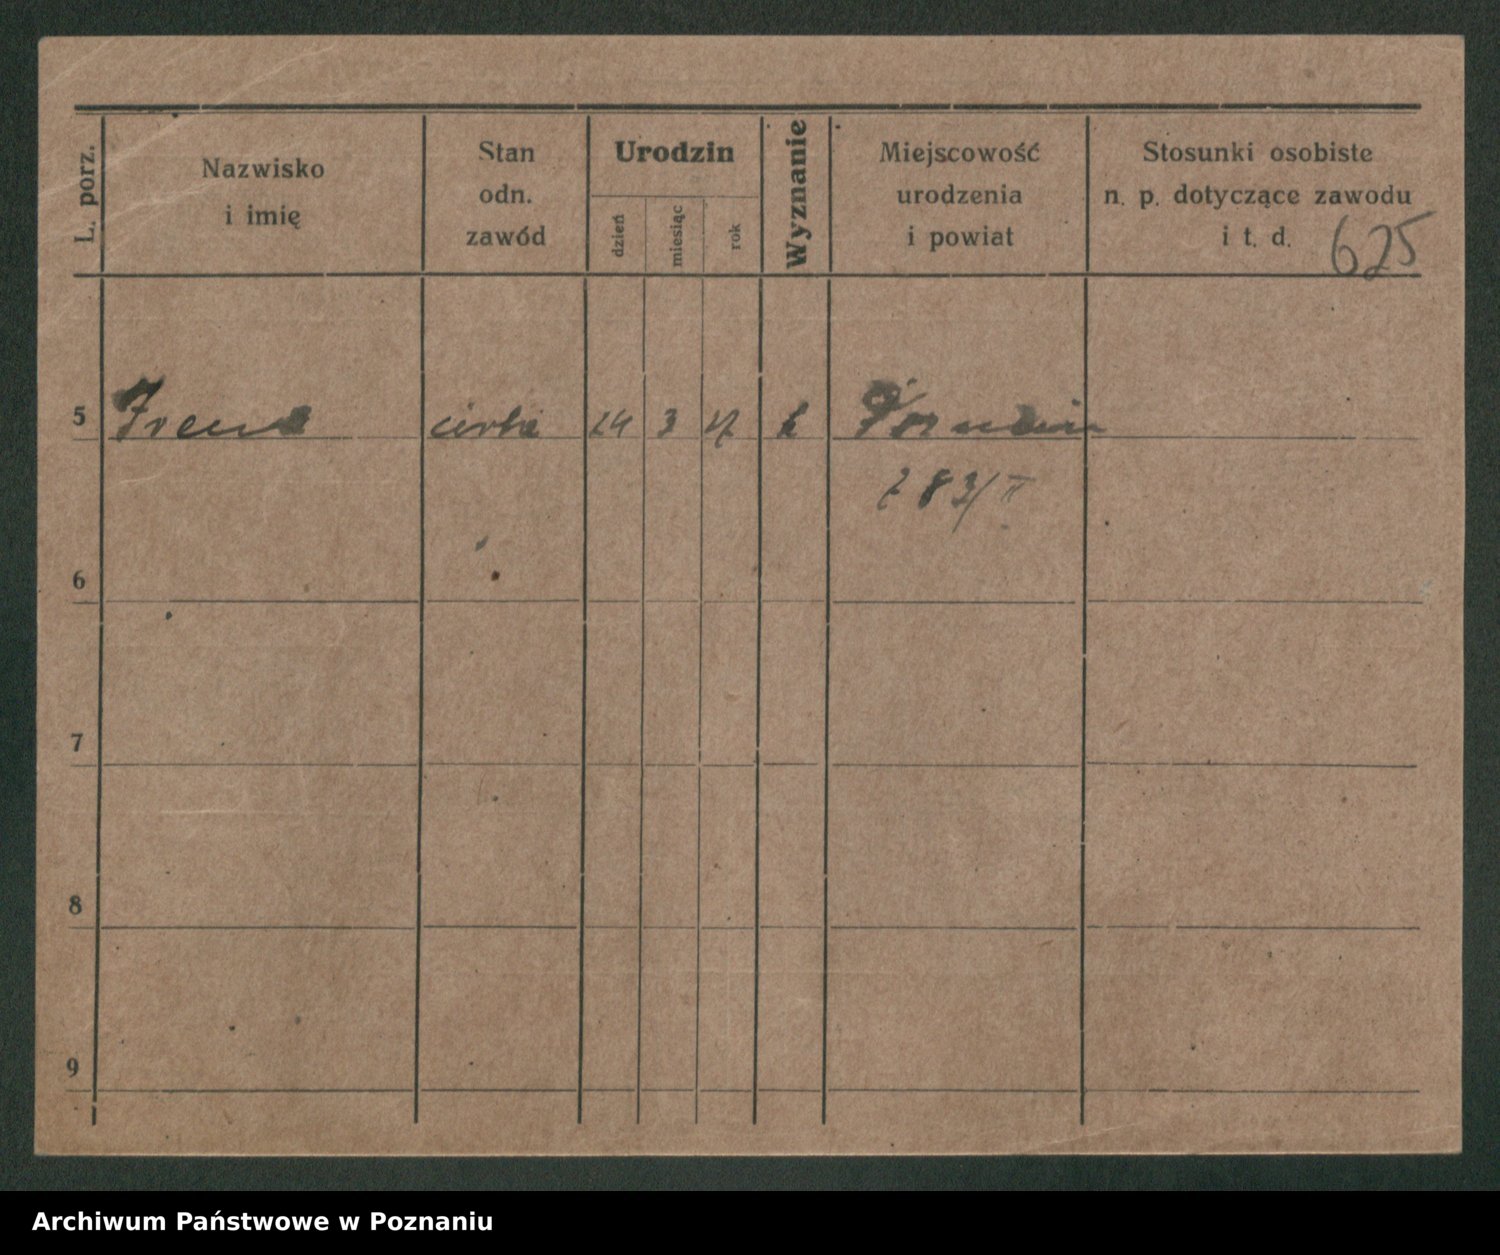 L. porz.
Nazwisko
i imię
Stan
odn.
zawód
Urodzin
dzień
miesiąc
rok
Wyznanie
Miejscowość
urodzenia
i powiat
Stosunki osobiste
n. p. dotyczące zawodu
i t. d.
625
5 Irena córka 24 3 17 k Poznań
283/II
6
7
8
9
Archiwum Państwowe w Poznaniu